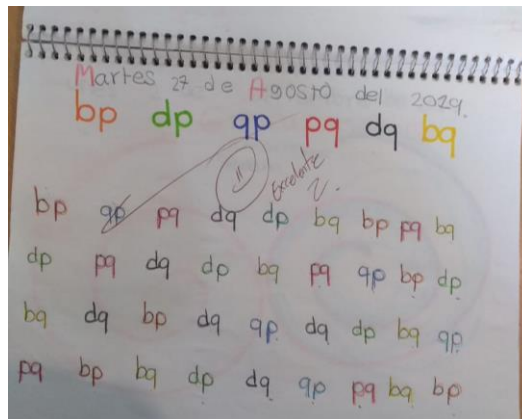 Martes 27 de Agosto del 2024.
bp dp qp pq dq bq
Excelente
bp qp pq dq dp bq bp pq bq
dp pq dq dp bq pq qp bp dp
bq dq bp dq qp dq dp bq qp
pq bp bq dp dq qp pq bq bp